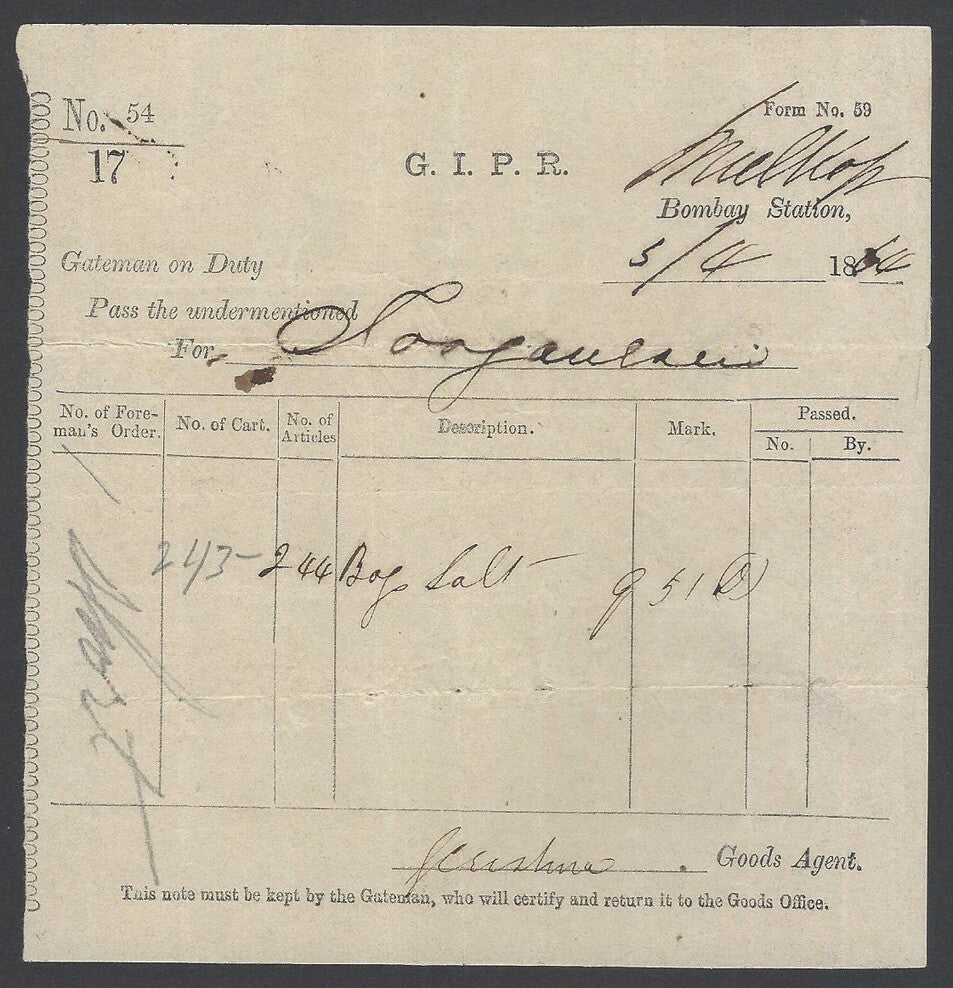 No. 54
17
Form No. 59
G. I. P. R.
Bombay Station,
5/4 1864
Gateman on Duty
Pass the undermentioned
For
No. of Fore-
man's Order.
No. of Cart.
No. of
Articles
Description.
Mark.
Passed.
No.
By.
243 244 Bags Salt 951
Goods Agent.
This note must be kept by the Gateman, who will certify and return it to the Goods Office.